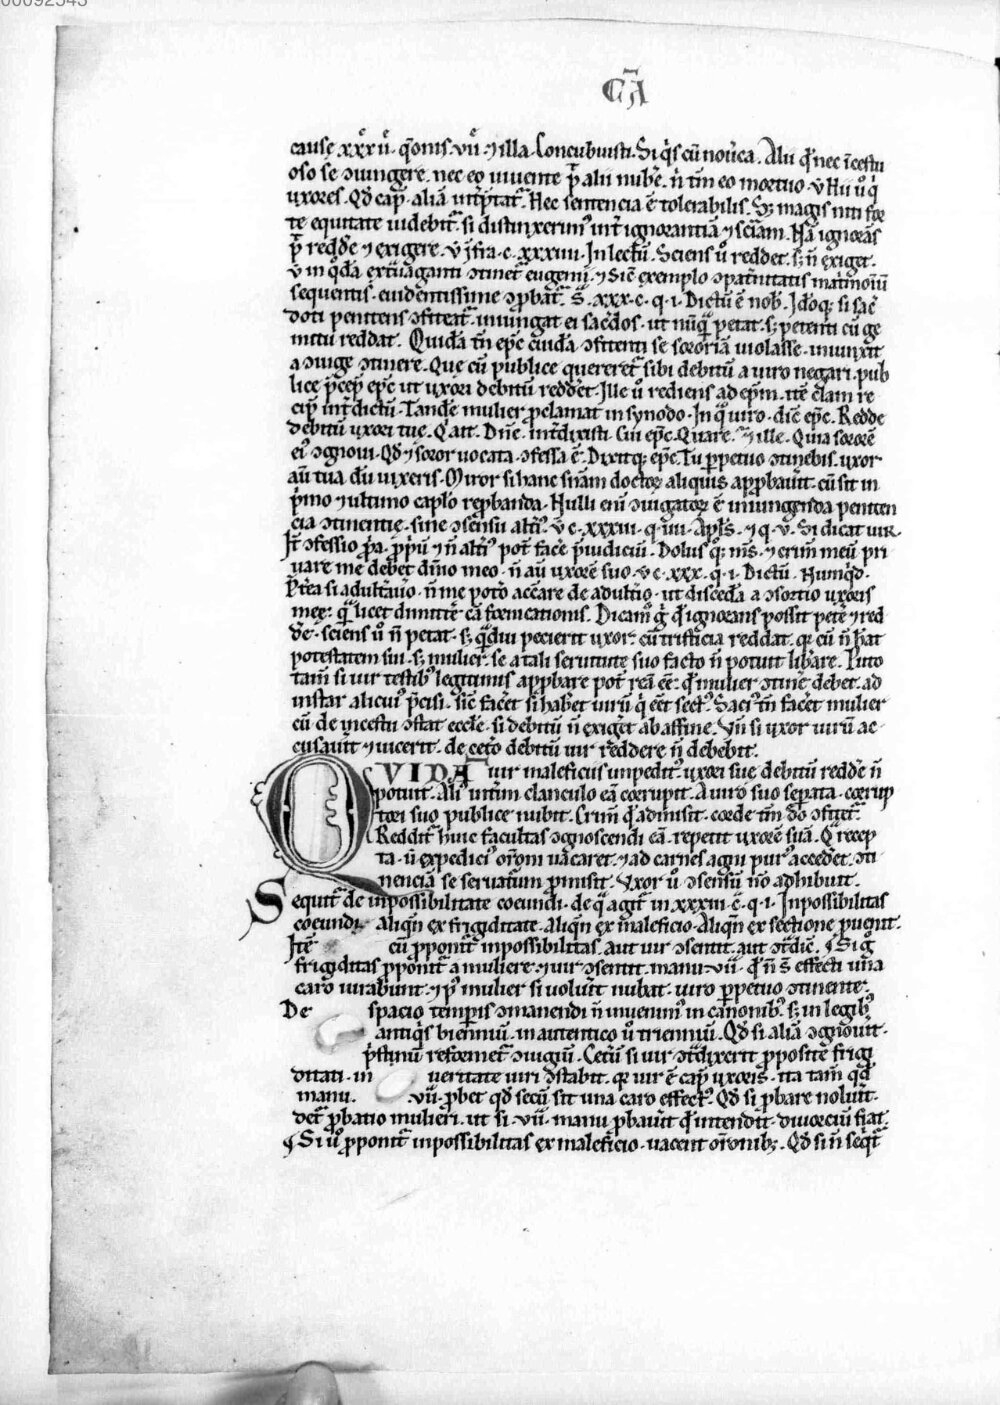 00092543
CA̅
cause xxxu̇. q̄onis. vii. ⁊ illa. Concubuisti. Si q̇s cū nou̇ca. Alii q̄ nec ī cestu
oso se ꝯiungere. nec eo viuente p̄t alii nubē. n̄ tm̄ eo mortuo. ꝟ Hii u̇o q̇
uxores. Qd̄ cap̄. aliā int̄p̄tat̄. Hec sentencia ē tolerabilis. Sꝫ magis niti for
te equitate uidebit̄. si distinxerim᷒ int̄ ignorantiā ⁊ sc̄iam. Nā ignorās
p̄t redd̄e ⁊ exigere. ꝟ īfra. c. xxxiiii. In lectū. Sciens u̇o reddet. sꝫ n̄ exiget.
ꝟ in q̄dā ext̄uaganti ꝯtinet̄ eugenii. ⁊ Sic̄ exemplo ꝯpat̄nitatis mat̄moīū
sequentis. euidentissime ꝓbat̄. s̄. xxx. c. q. i. Dictū ē nob̄. Idoqꝫ si sac̄
doti penitens ꝯfiteat̄. iniungat ei sac̄dos. ut nūq̄ petat. sꝫ petenti cū ge
mitu reddat. Quidā tn̄ ep̄c cuidā ꝯfitenti se sororiā uiolasse. iniunxit
a ꝯiuge ꝯtinere. Que cū publice quereret̄ sibi debitū a uiro negari. pub
lice p̄cep̄ ep̄c ut uxori debitū reddet. Ille u̇o rediens ad ep̄m. itē clam re
cip̄ int̄dictū. Tandē mulier ꝓclamat in synodo. In q̄ uiro. dic̄ ep̄c. Redde
debitū uxori tue. Q᷒ ait. Dn̄e. int̄dixisti. Cui ep̄c. Quare. ⁊ ille. Quia sororē
ei᷒ ꝯgnoui. Qd̄ ⁊ soror uocata. ꝯfessa ē. Dixitqꝫ ep̄c. Tu ꝑpetuo ꝯtinebis. uxor
aū tua dū uixeris. Miror si hanc sn̄iam doctoꝝ aliquis apꝓbauit. cū sit in
p̄mo ⁊ ultimo cap̄lo reꝓbanda. Nulli eni ꝯiugatoꝝ ē iniungenda peniten
cia ꝯtinentie. sine ꝯsensu alt̄i᷒. ꝟ c. xxxiii. q. iiii. Apl̄s. ⁊ q. v. Si dicat uir.
It̄ ꝯfessio p̄a. p̄p̄iū ⁊ n̄ alt̄i᷒ pot̄ facē p̄iudiciū. Dolus qꝫ m̄s. ⁊ crim̄ meū pri
uare me debet dn̄io meo. n̄ aū uxorē suo. ꝟ c. xxx. q. i. Dictū. Nunq̄d.
P̄t̄ea si adult̄auio. n̄ me pot̄o acc̄are de adult̄io. ut discedā a ꝯsortio uxoris
mee. q̄ licet dimitt̄e cā fornicationis. Dicam᷒ ḡ q̄ ignorans possit pet̄e ⁊ red
d̄e. sciens u̇o n̄ petat. sꝫ q̄mdiu pecierit uxor. cū tristicia reddat. qꝛ cū n̄ h̄at
potestatem sui. sꝫ mulier. se a tali seruitute suo facto n̄ potuit lib̄are. Puto
tam̄ si uir testib᷒ legitimis apꝓbare pot̄ reā eē. q̄ mulier ꝯtine debet. ad
instar alicui᷒ p̄cisi. sic̄ facet si haberet uirū q̇ eēt sect᷒. Saci᷒ tn̄ facet mulier
cū de incestu ꝯstat eccl̄e. si debitū n̄ exiget ab affine. Vn̄ si uxor uirū ac
cusauit ⁊ uicerit. de cet̄o debitū uir reddere n̄ debebit.
QVIDA̅ uir maleficiis impedit᷒ uxori sue debitū redd̄e n̄
potuit. Ali᷒ int̄im clanculo eā corrupit. A uiro suo sep̄ata. corrup
tori suo publice nubit. Crim̄ q̄ admisit. corde tm̄ d̄o ꝯfitet̄.
Reddit̄ huic facultas ꝯgnoscendi eā. repetit uxorē suā. Q̄ recep
ta. ut expedici᷒ or̄oni uacaret. ⁊ ad carnes agni pur᷒ accedet. ꝯti
nenciā se seruatum ꝓmisit. Uxor u̇o ꝯsensū nō adhibuit.
Sequit̄ de inpossibilitate coeundi. de q̄ agit̄ in xxxiii. c̄. q. i. Inpossibilitas
coeundi. aliq̄n ex frigiditate. aliq̄n ex maleficio. Aliq̄n ex sectione ꝓuenit.
Itē cū ꝓponit̄ inpossibilitas. aut uir ꝯsentit. aut ꝯt̄dic̄. ¶ Si ḡ
frigiditas ꝓponit̄ a muliere. ⁊ uir ꝯsentit. manu vii. q̄ n̄ s̄ effecti una
caro iurabunt. ⁊ p᷒ mulier si voluit nubat. uiro ꝑpetuo ꝯtinente.
De spacio temꝑis ꝯmanendi n̄ inuenim᷒ in canonib᷒. sꝫ in legib᷒
antiq̇s biennuī. in autentico u̇o trienniū. Qd̄ si aliā ꝯgnouit.
p̄stinū reformet̄ ꝯiugiū. Cet̄ū si uir ꝯt̄dixerit ꝓposite frigi
ditati. in ueritate uiri ꝯstabit. qꝛ uir ē cap̄ uxoris. ita tam̄ qd̄
manu. vii. ꝓbet qd̄ secū sit una caro effect᷒. Qd̄ si ꝓbare noluit.
det̄ ꝓbatio mulieri. ut si. vii. manu ꝓbauit q̄ intendit. diuorciū fiat.
¶ Si u̇o ꝓponit̄ inpossibilitas ex maleficio. uacent or̄onibꝫ. Qd̄ si n̄ seq̄t̄